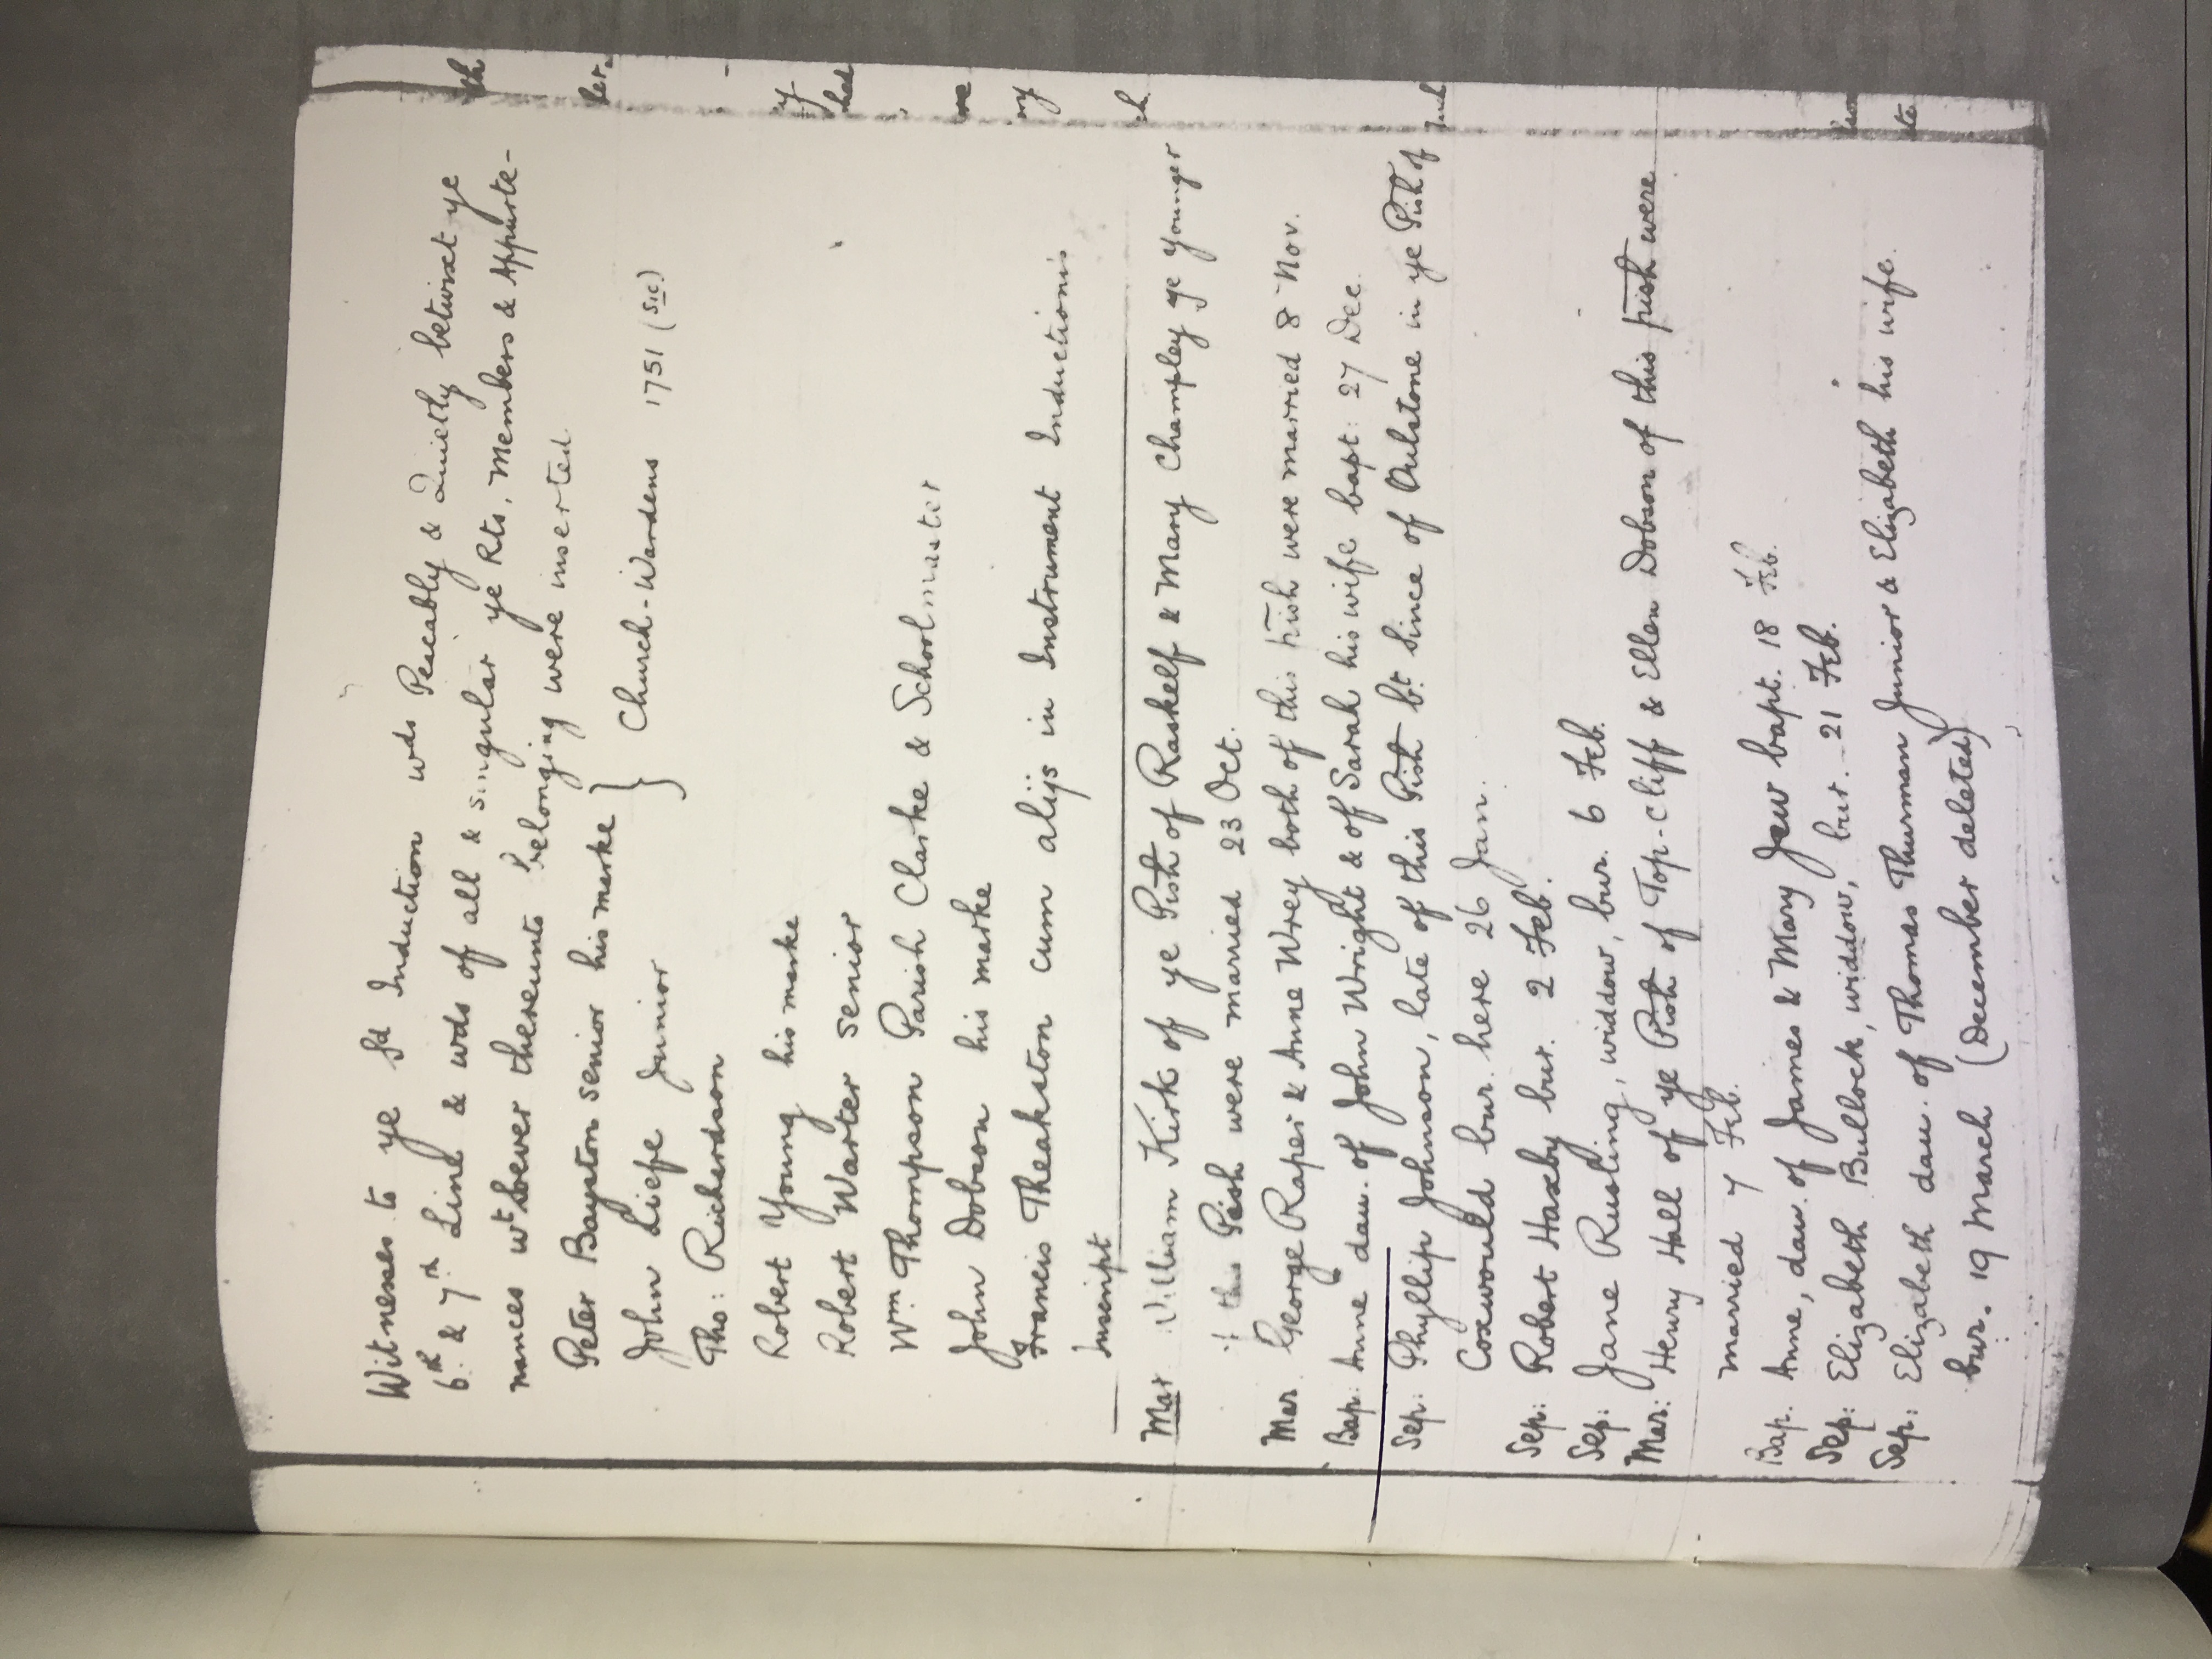 Witnesses to ye sd Induction wds Peacably & Quietly betwixt ye
6th & 7th Line & wds of all & singular ye Rts, Members & Appurte-
nances wtsoever thereunto belonging were inserted
Peter Bayston senior his marke }
John Liefe Junior } Church-Wardens 1751 (sic)
Tho: Richardson
Robert Young his marke
Robert Warter senior
Wm. Thompson Parish Clarke & Schoolmaster
John Dobson his marke
Francis Theakston cum alijs in Instrument Inductionis
Inscript
Mar William Kirk of ye Pish of Raskelf & Mary Champley ye younger
of this Pish were married 23 Oct.
Mar. George Raper & Anne Wrey both of this pish were married 8 Nov.
Bap: Anne dau. of John Wright & of Sarah his wife bapt: 27 Dec.
Sep: Phyllip Johnson, late of this Pish bt. since of Oulstone in ye Pish of
Coxwould bur. here 26 Jan.
Sep: Robert Haxby bur. 2 Feb.
Sep: Jane Rusling, widdow, bur. 6 Feb.
Mar: Henry Hall of ye Pish of Top-Cliff & Ellen Dobson of this pish were
married 7 Feb.
Bap. Anne, dau. of James & Mary Jew bapt. 18 Feb.
Sep: Elizabeth Bullock, widdow, bur. 21 Feb.
Sep: Elizabeth dau. of Thomas Thurman Junior & Elizabeth his wife.
bur. 19 March (December deleted)